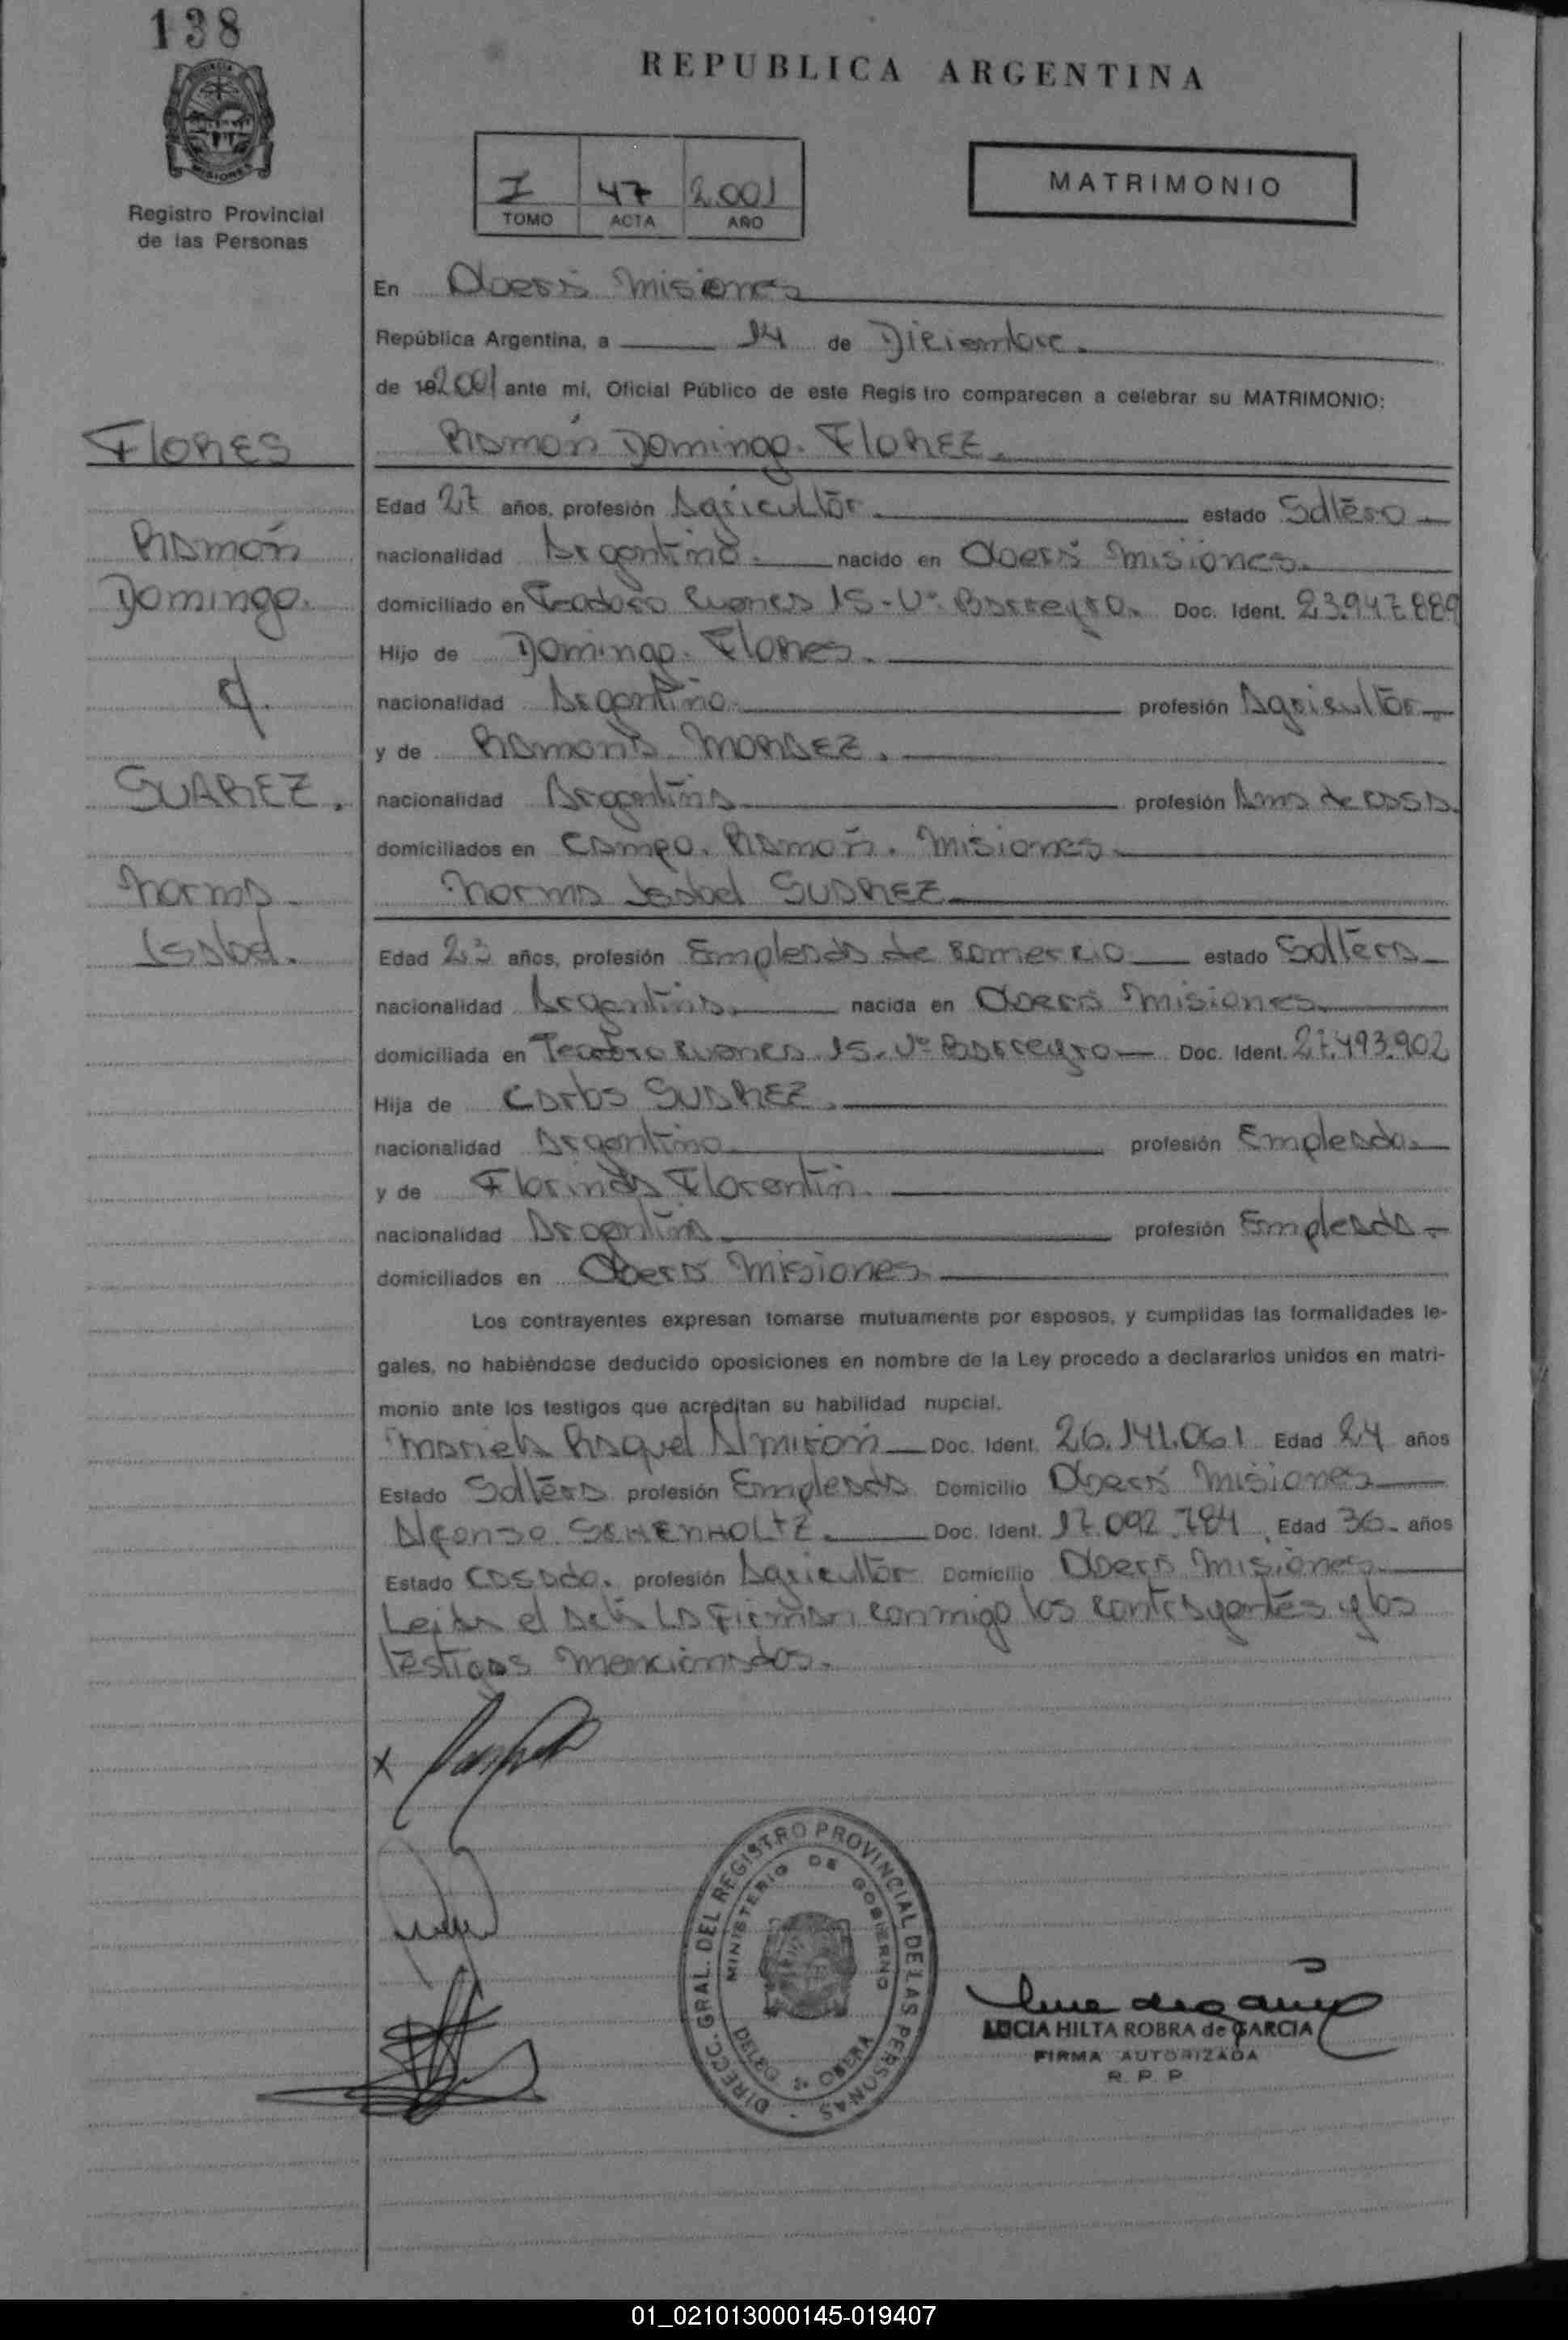 138
REPUBLICA ARGENTINA
I 47 2.001
TOMO ACTA AÑO
MATRIMONIO
MISIONES
Registro Provincial
de las Personas
En Oberá Misiones
República Argentina, a 14 de Diciembre.
de 19 2001 ante mi, Oficial Público de este Registro comparecen a celebrar su MATRIMONIO:
FLORES
Ramón Domingo. FLOREZ.
Edad 27 años, profesión Agricultor estado Soltero
Ramón
nacionalidad Argentino. nacido en Oberá Misiones.
Domingo.
domiciliado en 15 - Vº Barreyro. Doc. Ident. 23.947.889
Hijo de Domingo. Flores.
c/.
nacionalidad Argentino. profesión Agricultor.
y de Ramona
SUAREZ.
nacionalidad Argentina profesión Ama de casa.
domiciliados en Campo. Ramón. Misiones.
Norma
Norma Isabel SUAREZ
Isabel.
Edad 23 años, profesión Empleada de Comercio estado Soltera
nacionalidad Argentina. nacida en Oberá Misiones.
domiciliada en 15. Vº Barreyro Doc. Ident. 27.493.902
Hija de Carlos SUAREZ.
nacionalidad Argentino profesión Empleado.
y de Florinda Florentin.
nacionalidad Argentina profesión Empleada
domiciliados en Oberá Misiones.
Los contrayentes expresan tomarse mutuamente por esposos, y cumplidas las formalidades le-
gales, no habiéndose deducido oposiciones en nombre de la Ley procedo a declararlos unidos en matri-
monio ante los testigos que acreditan su habilidad nupcial.
Mariela Raquel Almirón Doc. Ident. 26.141.061 Edad 24 años
Estado Soltera profesión Empleada Domicilio Oberá Misiones
Alfonso SCHENHOLTZ. Doc. Ident. 17.092.784 Edad 36 años
Estado Casado. profesión Agricultor Domicilio Oberá Misiones.
Leída el acta la Firman conmigo los contrayentes y los
testigos mencionados.
x
DIRECC. GRAL. DEL REGISTRO PROVINCIAL DE LAS PERSONAS
MINISTERIO DE GOBIERNO
DELEG. OBERA
LUCIA HILTA ROBRA de GARCIA
FIRMA AUTORIZADA
R. P. P.
01_021013000145-019407